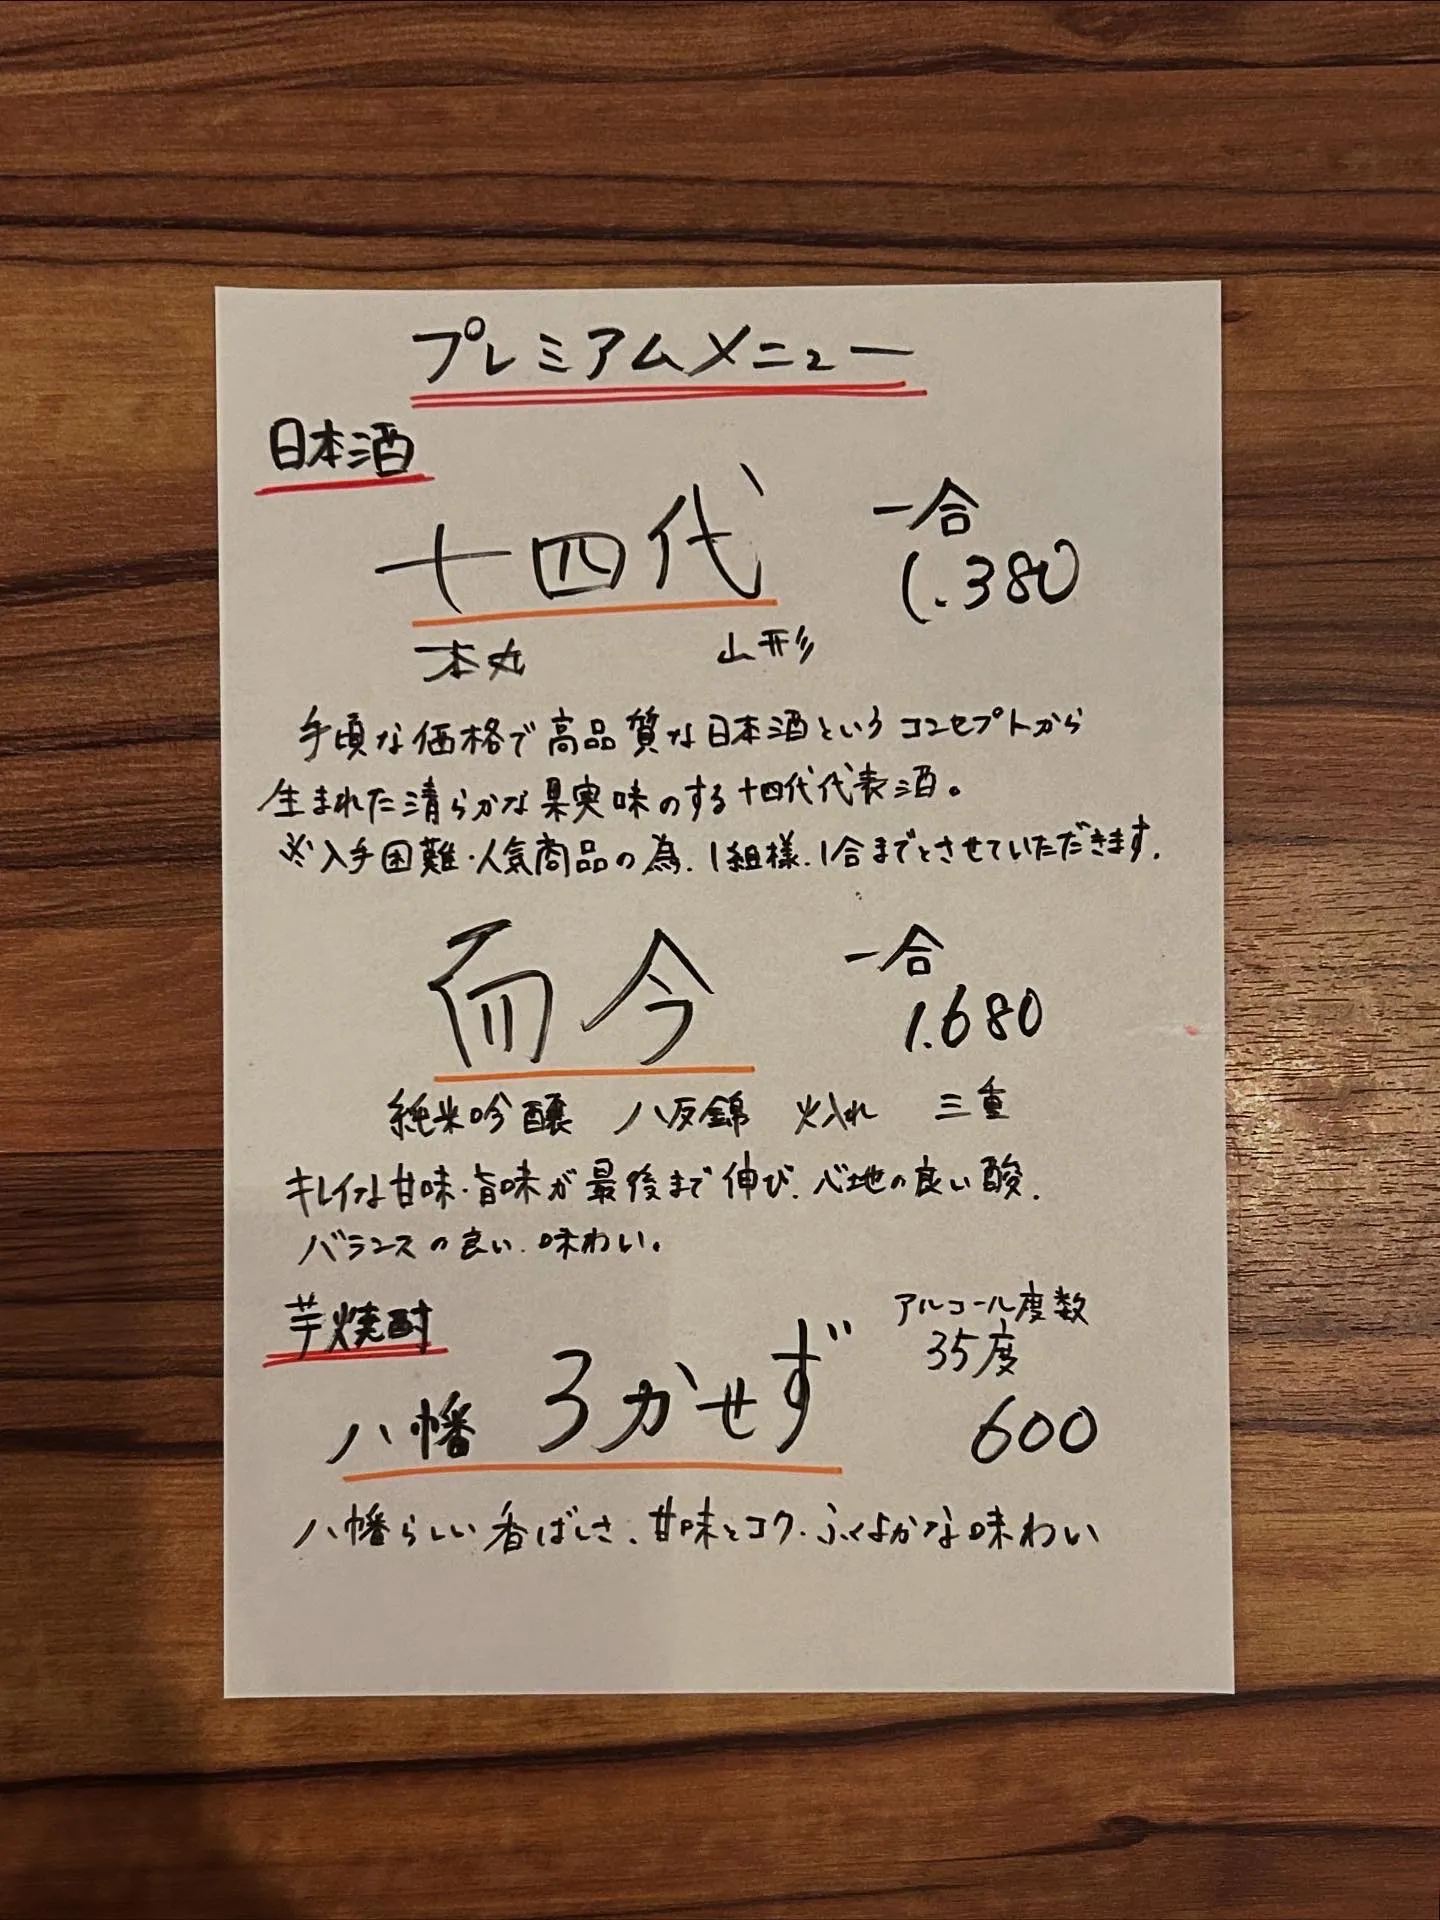 プレミアムメニュー
日本酒
十四代 一合
1.380
本丸 山形
手頃な価格で高品質な日本酒というコンセプトから
生まれた清らかな果実味のする十四代代表酒。
※入手困難・人気商品の為、1組様、1合までとさせていただきます。
而今 一合
1.680
純米吟醸 八反錦 火入れ 三重
キレイな甘味・旨味が最後まで伸び、心地の良い酸、
バランスの良い、味わい。
芋焼酎 アルコール度数
35度
八幡 ろかせず 600
八幡らしい香ばしさ、甘味とコク、ふくよかな味わい